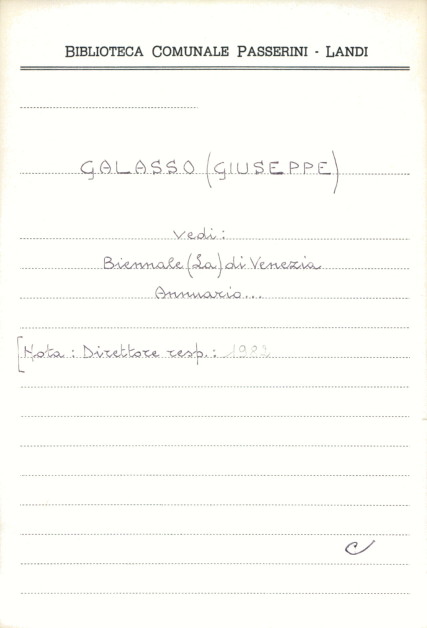 BIBLIOTECA COMUNALE PASSERINI - LANDI
GALASSO (GIUSEPPE)
Vedi:
Biennale (La) di Venezia
Annuario...
[Nota : Direttore resp.: 1982
C